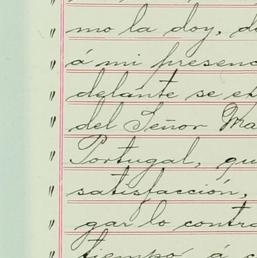 mo la doy, d
" á mi presenc
" delante se ex
" del Señor Ma
" Portugal, qu
" satisfacción,
" gar lo contra
" tiempo á c